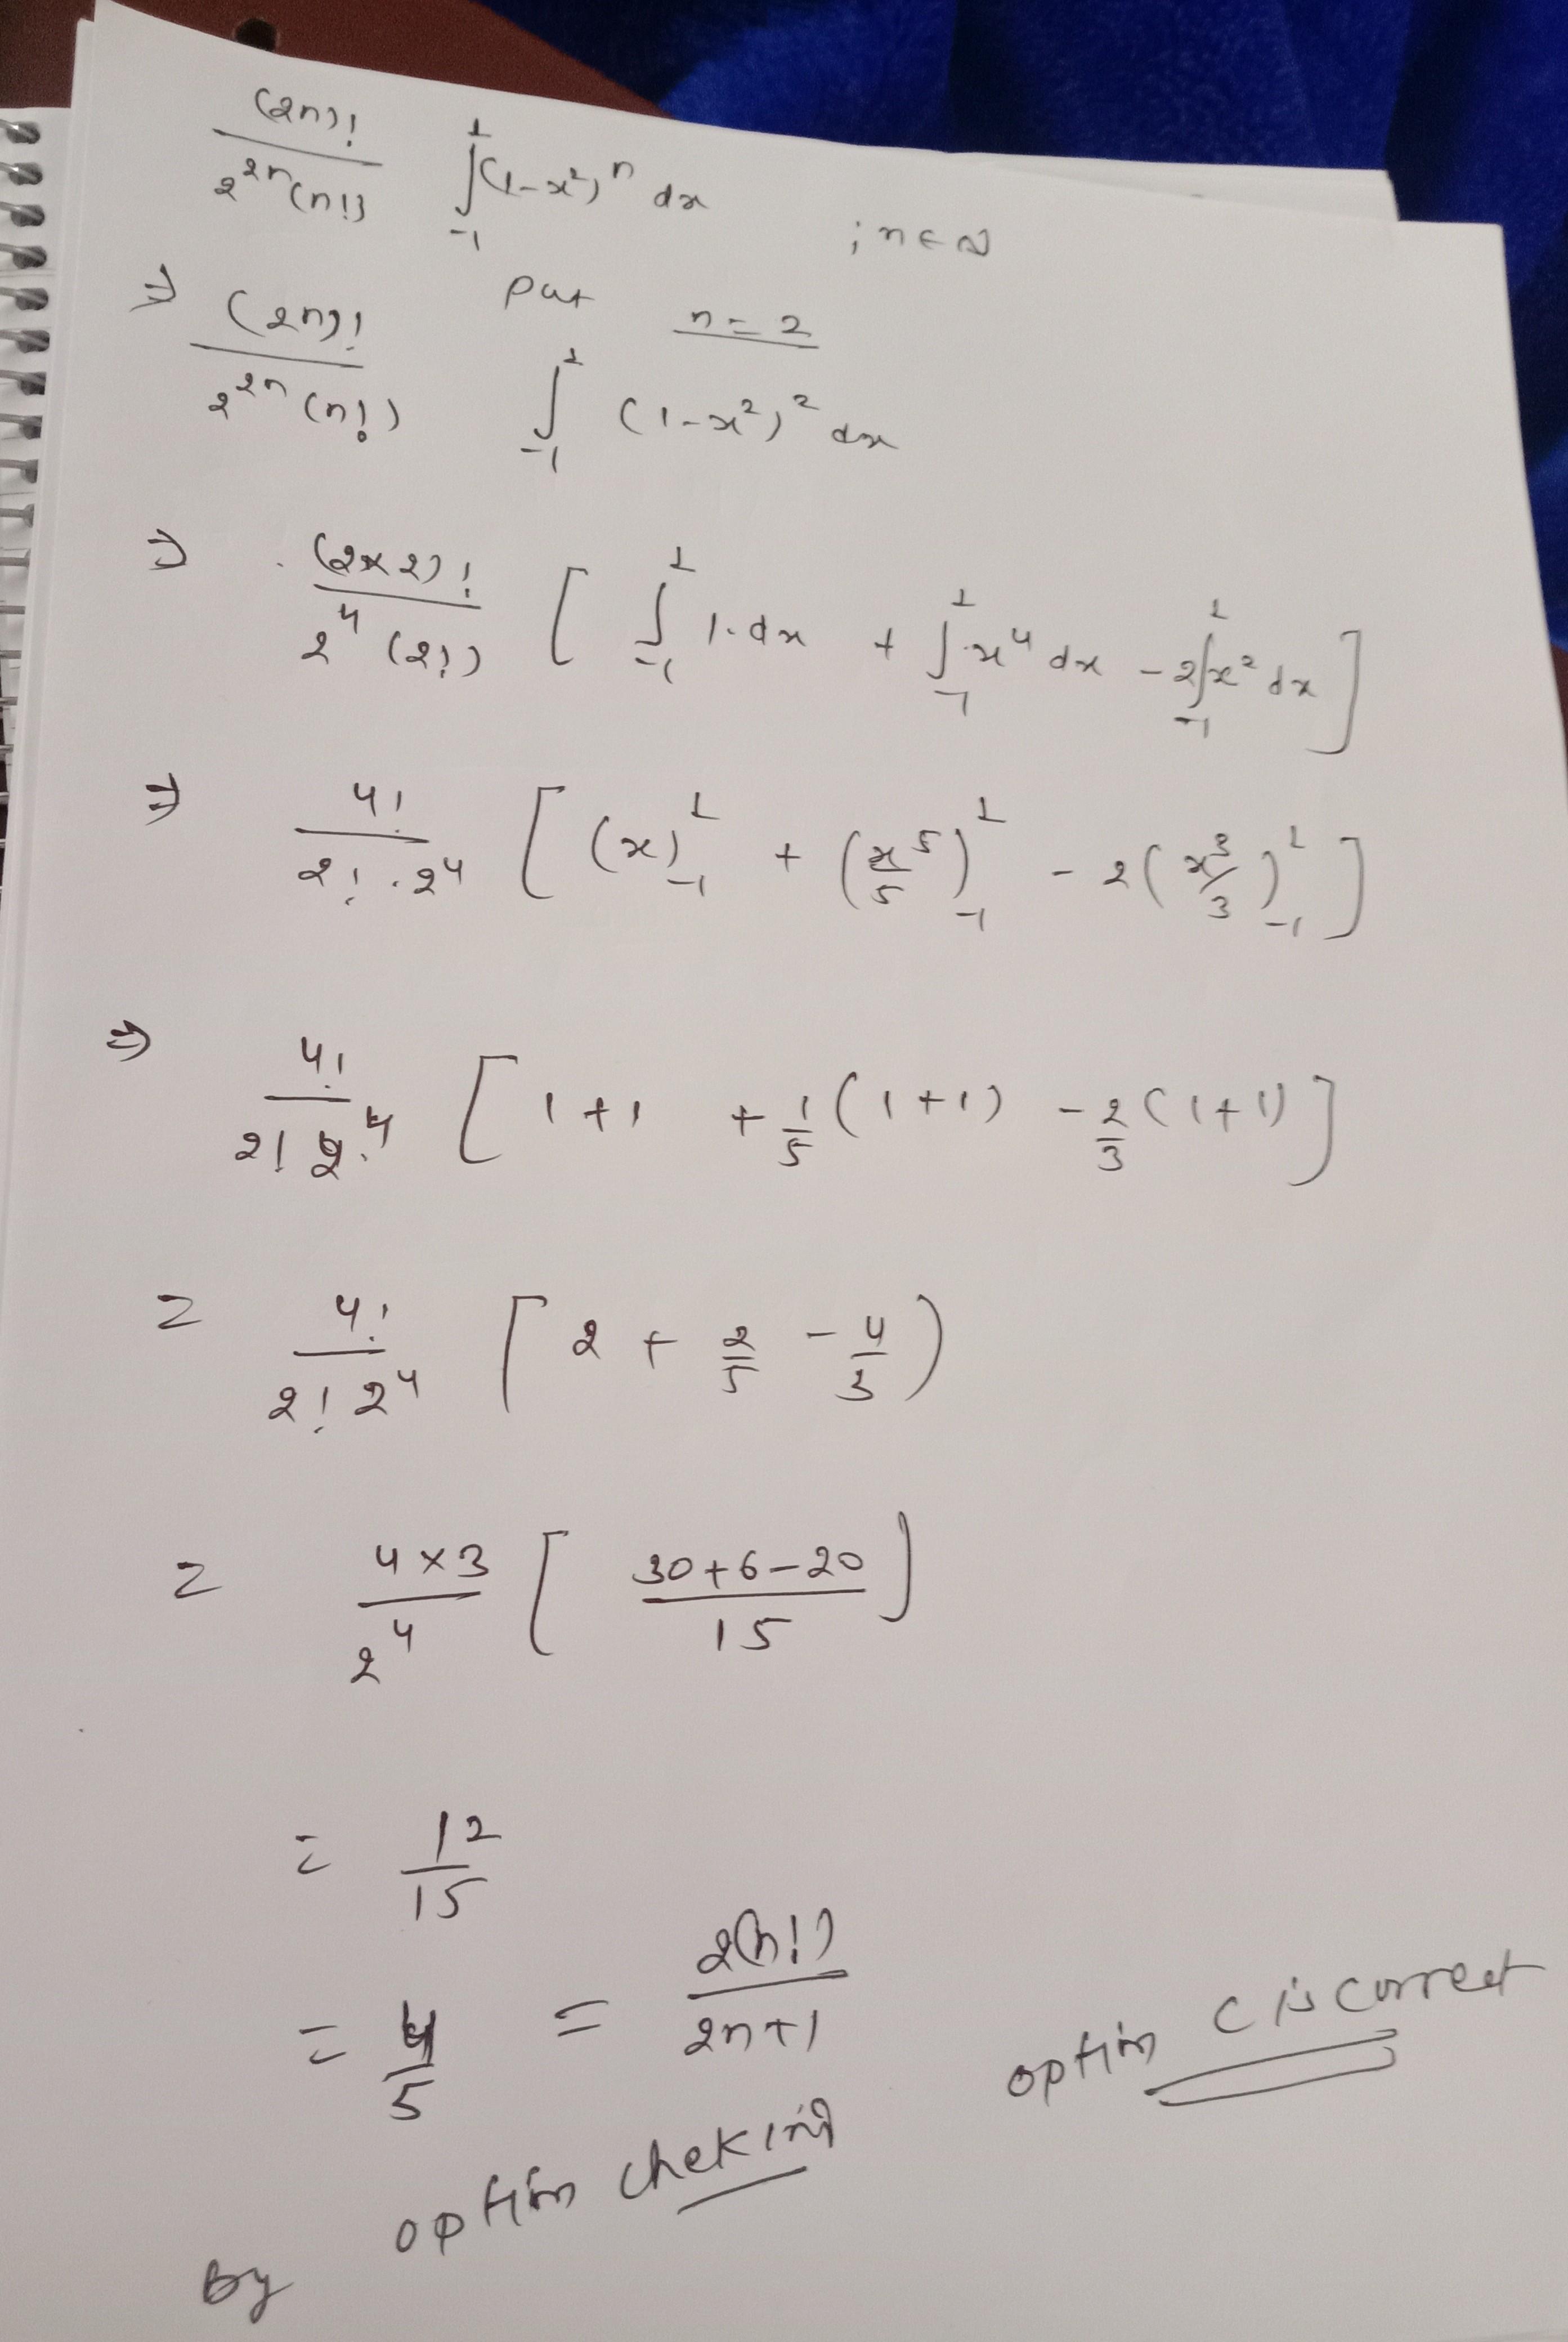 (2n)! / 2^{2n}(n!) ∫_{-1}^{1} (1-x²)^n dx ; n∈N
put n=2
⇒ (2n)! / 2^{2n}(n!) ∫_{-1}^{1} (1-x²)² dx
⇒ (2×2)! / 2⁴(2!) [ ∫_{-1}^{1} 1.dx + ∫_{-1}^{1} x⁴ dx - 2∫_{-1}^{1} x² dx ]
⇒ 4! / 2!.2⁴ [ (x)_{-1}^{1} + (x⁵/5)_{-1}^{1} - 2(x³/3)_{-1}^{1} ]
⇒ 4! / 2! 2⁴ [ 1+1 + 1/5 (1+1) - 2/3 (1+1) ]
= 4! / 2! 2⁴ [ 2 + 2/5 - 4/3 )
= 4×3 / 2⁴ [ 30+6-20 / 15 ]
= 12/15
= 4/5 = 2(n!) / 2n+1
option C is correct
By option cheking